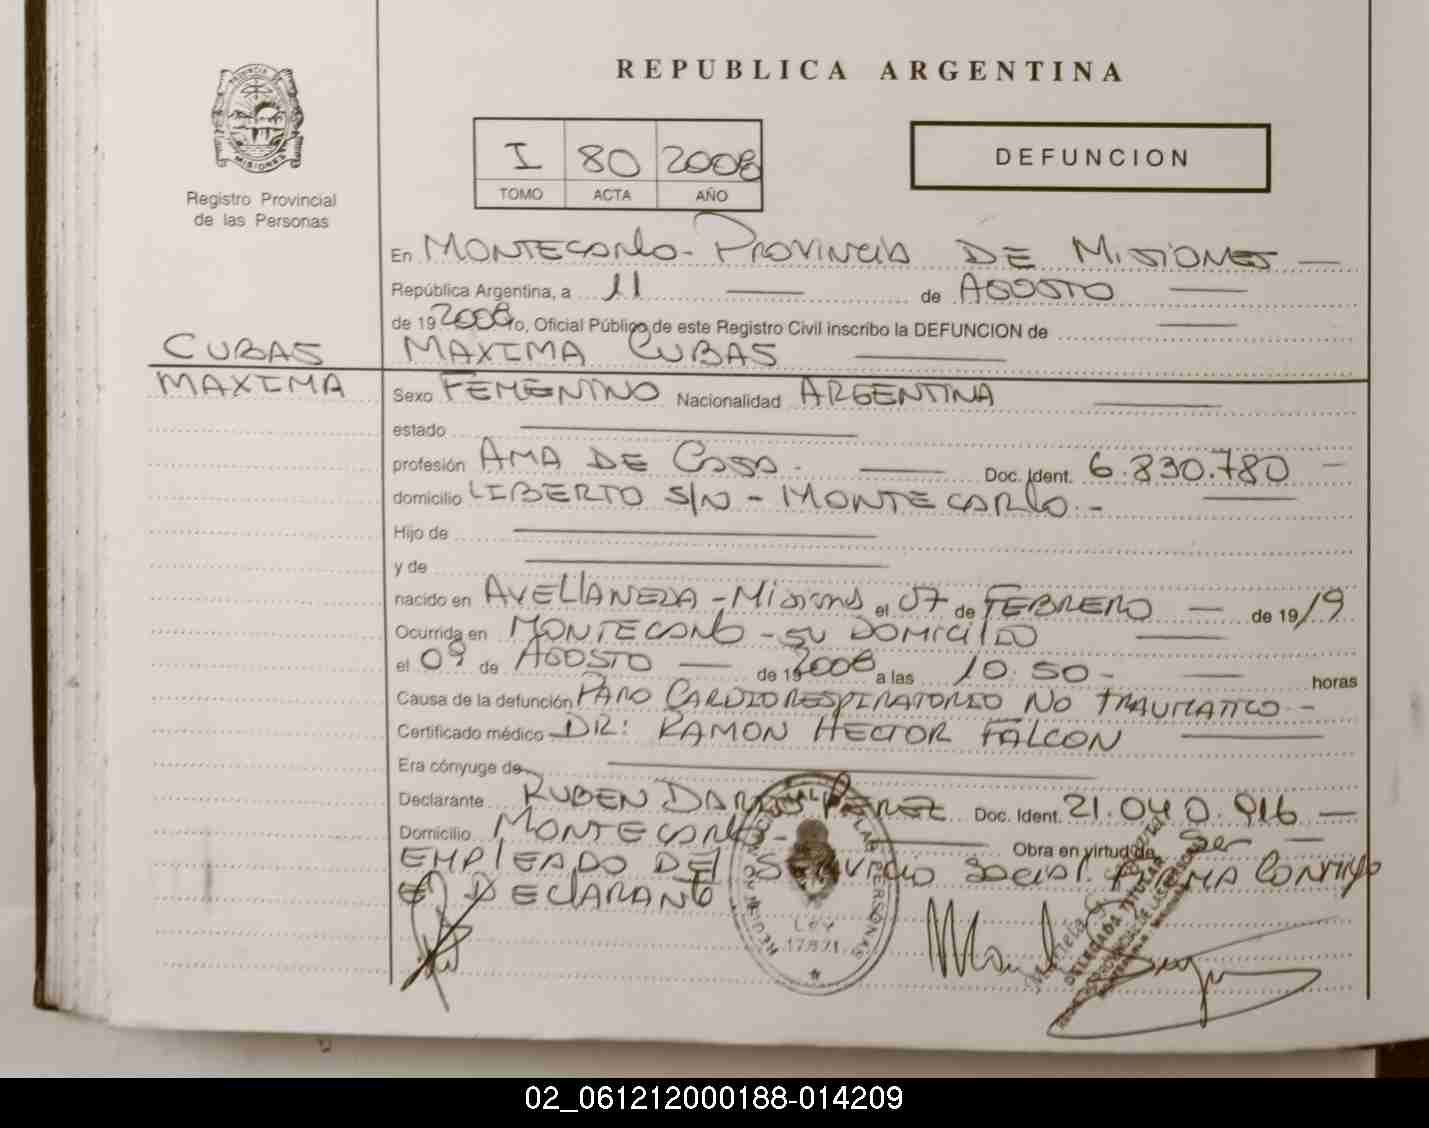 REPUBLICA ARGENTINA
PROVINCIA DE
MISIONES
Registro Provincial
de las Personas
I 80 2008
TOMO ACTA AÑO
DEFUNCION
En MONTECARLO - PROVINCIA DE MISIONES
República Argentina, a 11 de AGOSTO
de 19 2008 yo, Oficial Público de este Registro Civil inscribo la DEFUNCION de
CUBAS MAXIMA CUBAS
MAXIMA
Sexo FEMENINO Nacionalidad ARGENTINA
estado
profesión AMA DE CASA. Doc. Ident. 6.830.780
domicilio LIBERTO S/N - MONTECARLO.-
Hijo de
y de
nacido en AVELLANEDA - Misiones el 07 de FEBRERO de 19 19
Ocurrida en MONTECARLO - SU DOMICILIO
el 09 de AGOSTO de 19 2008 a las 10.50 horas
Causa de la defunción PARO CARDIORESPIRATORIO NO TRAUMATICO -
Certificado médico DR: RAMON HECTOR FALCON
Era cónyuge de
Declarante RUBEN DARIO PEREZ Doc. Ident. 21.040.916
Domicilio MONTECARLO - Obra en virtud de Ser
EMPLEADO DEL SERVICIO SOCIAL. FIRMA CONMIGO
EL DECLARANTE
LAS PERSONAS
LEY
17821
DELEGADA TITULAR
02_061212000188-014209